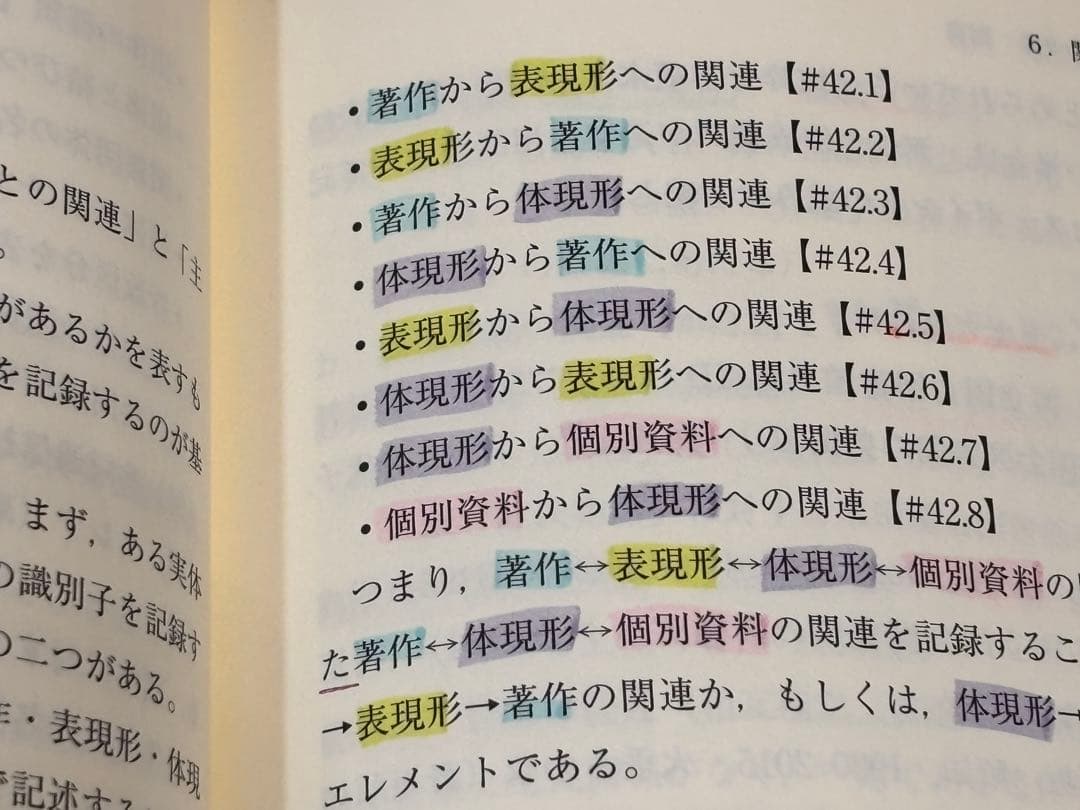 との関連」と「主
。
があるかを表すも
を記録するのが基
まず，ある実体
の識別子を記録す
の二つがある。
・表現形・体現
で記述する
6．
・著作から表現形への関連【#42.1】
・表現形から著作への関連【#42.2】
・著作から体現形への関連【#42.3】
・体現形から著作への関連【#42.4】
・表現形から体現形への関連【#42.5】
・体現形から表現形への関連【#42.6】
・体現形から個別資料への関連【#42.7】
・個別資料から体現形への関連【#42.8】
つまり，著作↔表現形↔体現形↔個別資料の
た著作↔体現形↔個別資料の関連を記録するこ
→表現形→著作の関連か，もしくは，体現形→
エレメントである。